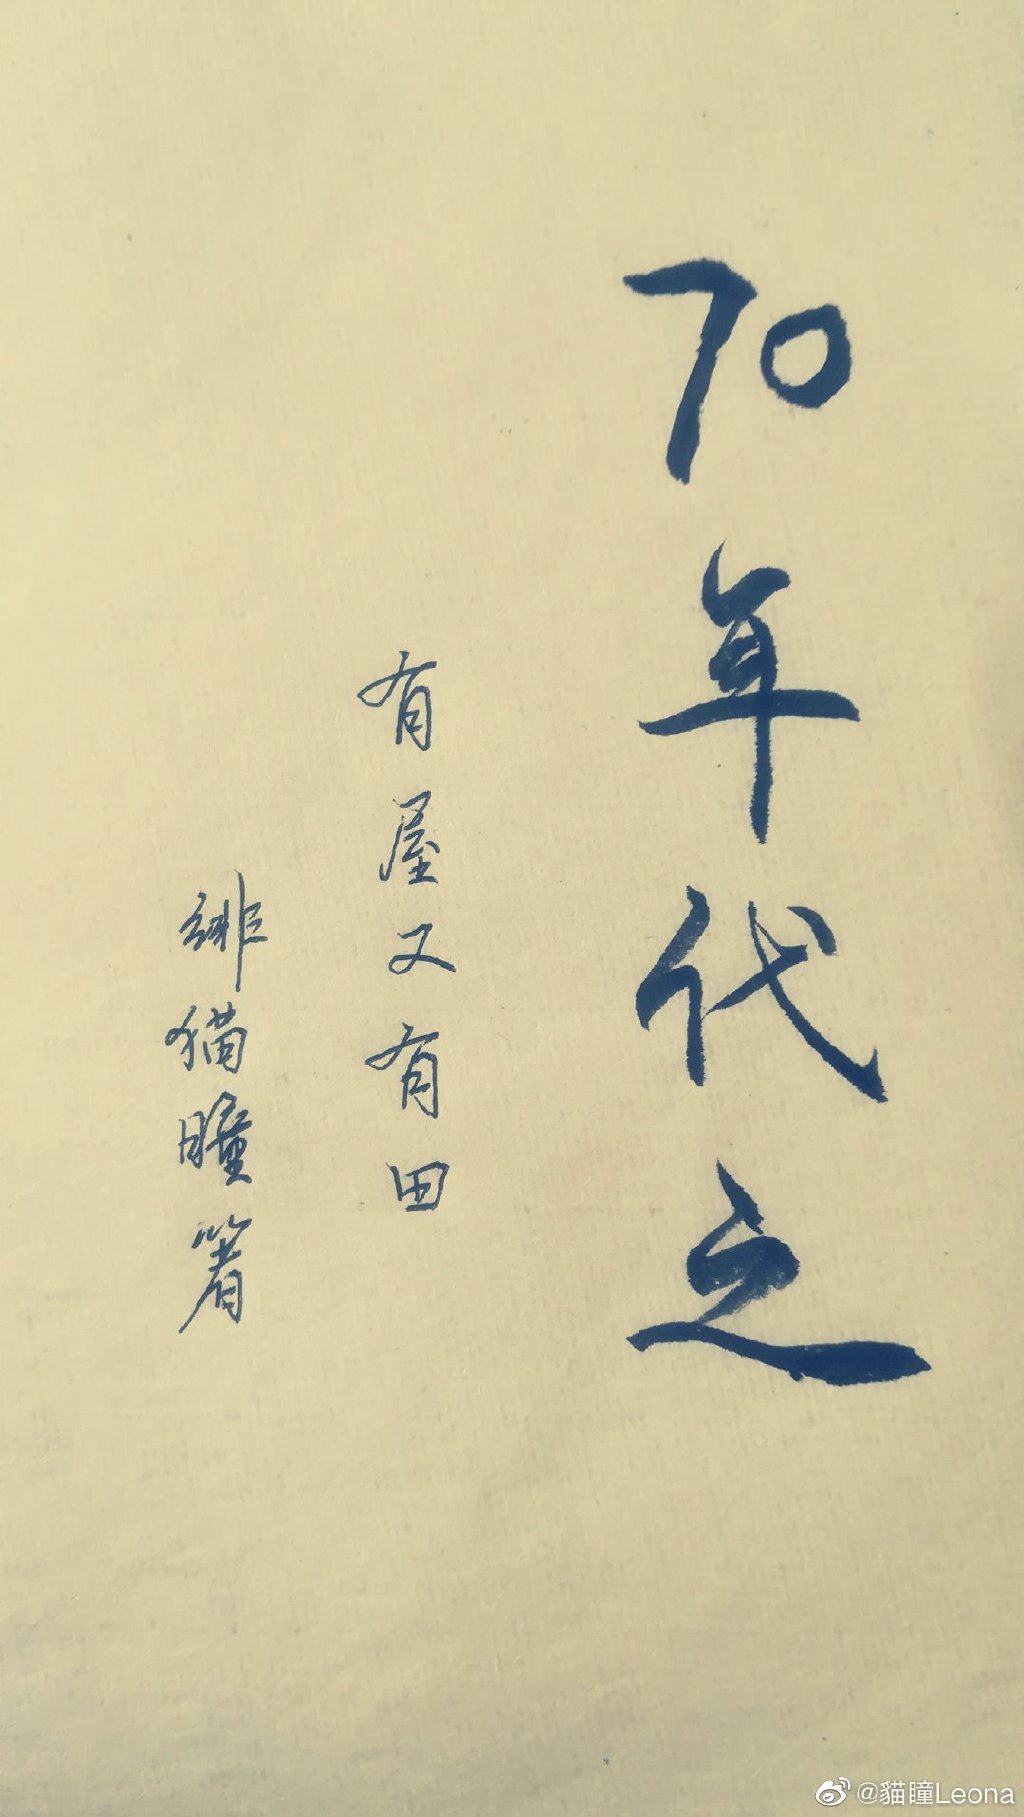 70年代之
有屋又有田
绯猫瞳箸
@貓瞳Leona